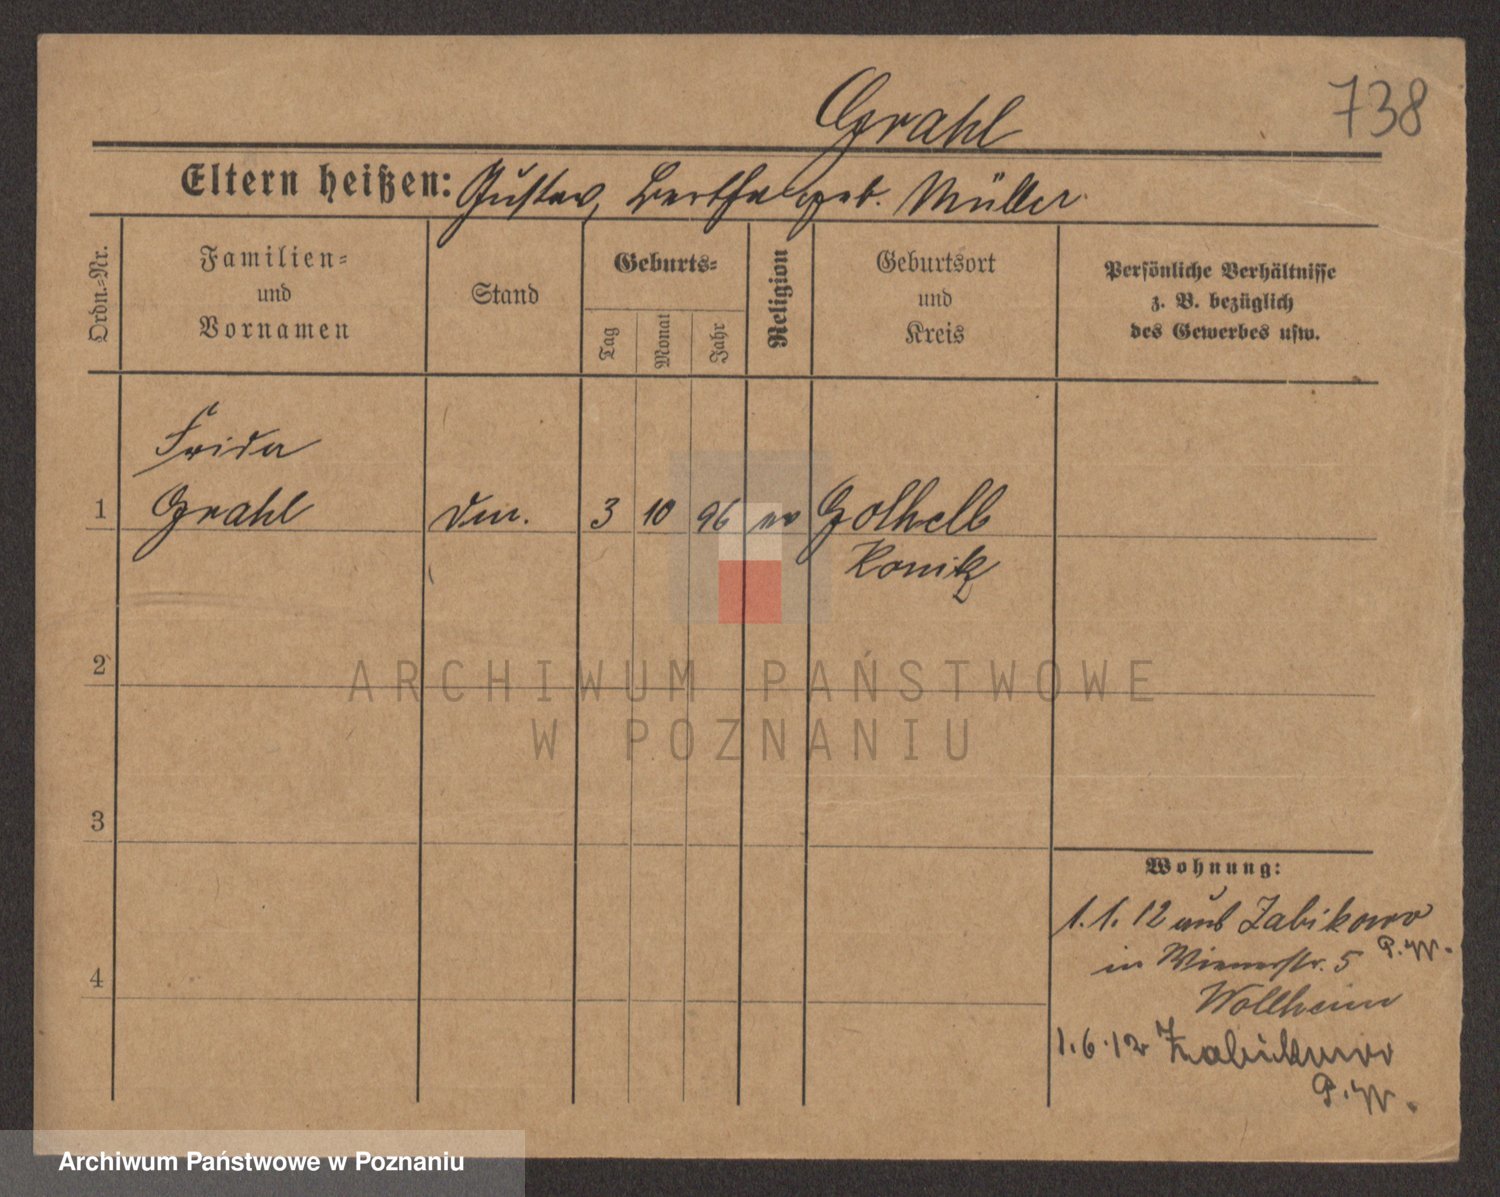 Grahl
738
Eltern heißen: Gustav, Bertha geb. Müller
Ordn.-Nr.
Familien-
und
Vornamen
Stand
Geburts-
Tag
Monat
Jahr
Religion
Geburtsort
und
Kreis
Persönliche Verhältnisse
z. B. bezüglich
des Gewerbes usw.
Frida
1 Grahl 3 10 96 ev
Konitz
2
3
4
Wohnung:
1.1.12 aus Zabikowo
P.W.
in Wienerstr. 5
Wollheim
1.6.12 Zabikowo
P.W.
ARCHIWUM PAŃSTWOWE
W POZNANIU
Archiwum Państwowe w Poznaniu